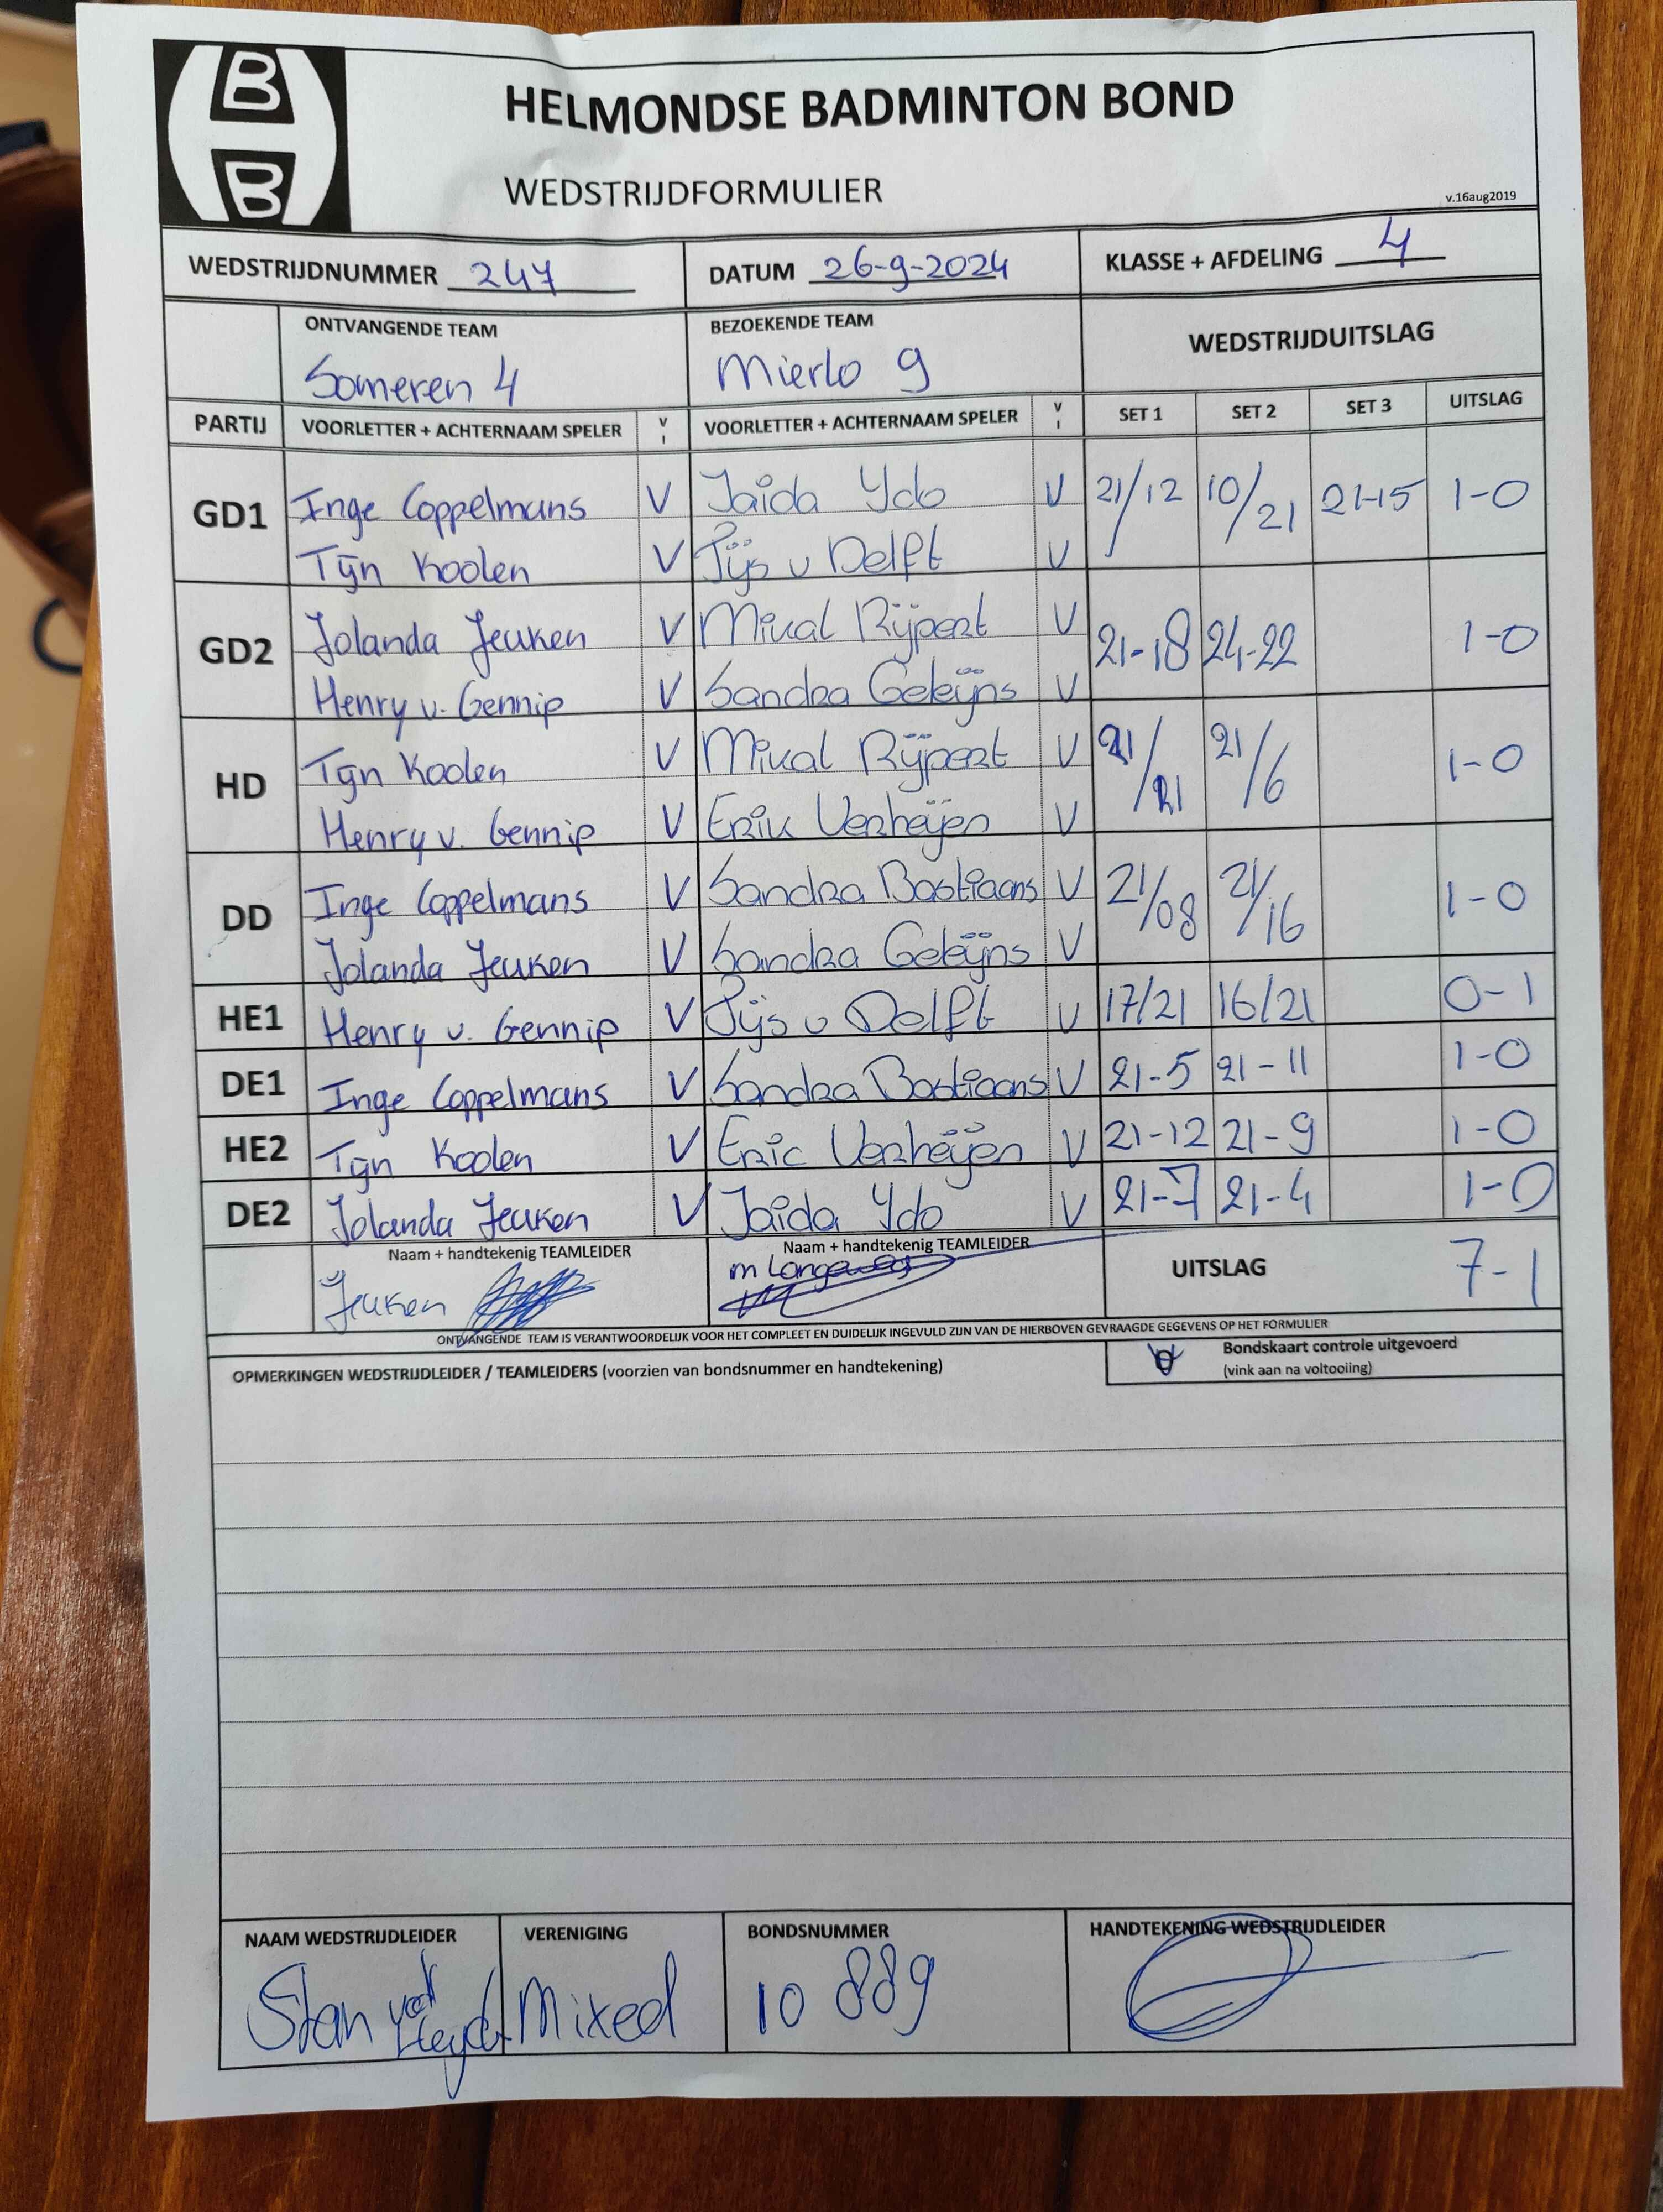 B
B
HELMONDSE BADMINTON BOND
WEDSTRIJDFORMULIER
v.16aug2019
WEDSTRIJDNUMMER 247 DATUM 26-9-2024 KLASSE + AFDELING 4
ONTVANGENDE TEAM BEZOEKENDE TEAM WEDSTRIJDUITSLAG
Someren 4 Mierlo 9
PARTIJ VOORLETTER + ACHTERNAAM SPELER V I VOORLETTER + ACHTERNAAM SPELER V I SET 1 SET 2 SET 3 UITSLAG
GD1 Inge Coppelmans V Jaida Ydo V 21/12 10/21 21-15 1-0
Tijn Koolen V Tijs v Delft V
GD2 Jolanda Jeuken V Mical Rijpert V 21-18 24-22 1-0
Henry v. Gennip V Sandra Geleijns V
HD Tijn Koolen V Mical Rijpert V 21/ 21/6 1-0
Henry v. Gennip V Erik Verheijen V
DD Inge Coppelmans V Sandra Bastiaans V 21/08 21/16 1-0
Jolanda Jeuken V Sandra Geleijns V
HE1 Henry v. Gennip V Tijs v Delft V 17/21 16/21 0-1
DE1 Inge Coppelmans V Sandra Bastiaans V 21-5 21-11 1-0
HE2 Tijn Koolen V Eric Verheijen V 21-12 21-9 1-0
DE2 Jolanda Jeuken V Jaida Ydo V 21-7 21-4 1-0
Naam + handtekenig TEAMLEIDER Naam + handtekenig TEAMLEIDER
Jeuken m Langeweg UITSLAG 7-1
ONTVANGENDE TEAM IS VERANTWOORDELIJK VOOR HET COMPLEET EN DUIDELIJK INGEVULD ZIJN VAN DE HIERBOVEN GEVRAAGDE GEGEVENS OP HET FORMULIER
OPMERKINGEN WEDSTRIJDLEIDER / TEAMLEIDERS (voorzien van bondsnummer en handtekening)
Bondskaart controle uitgevoerd
(vink aan na voltooiing)
NAAM WEDSTRIJDLEIDER VERENIGING BONDSNUMMER HANDTEKENING WEDSTRIJDLEIDER
Stan Mixed 10 889